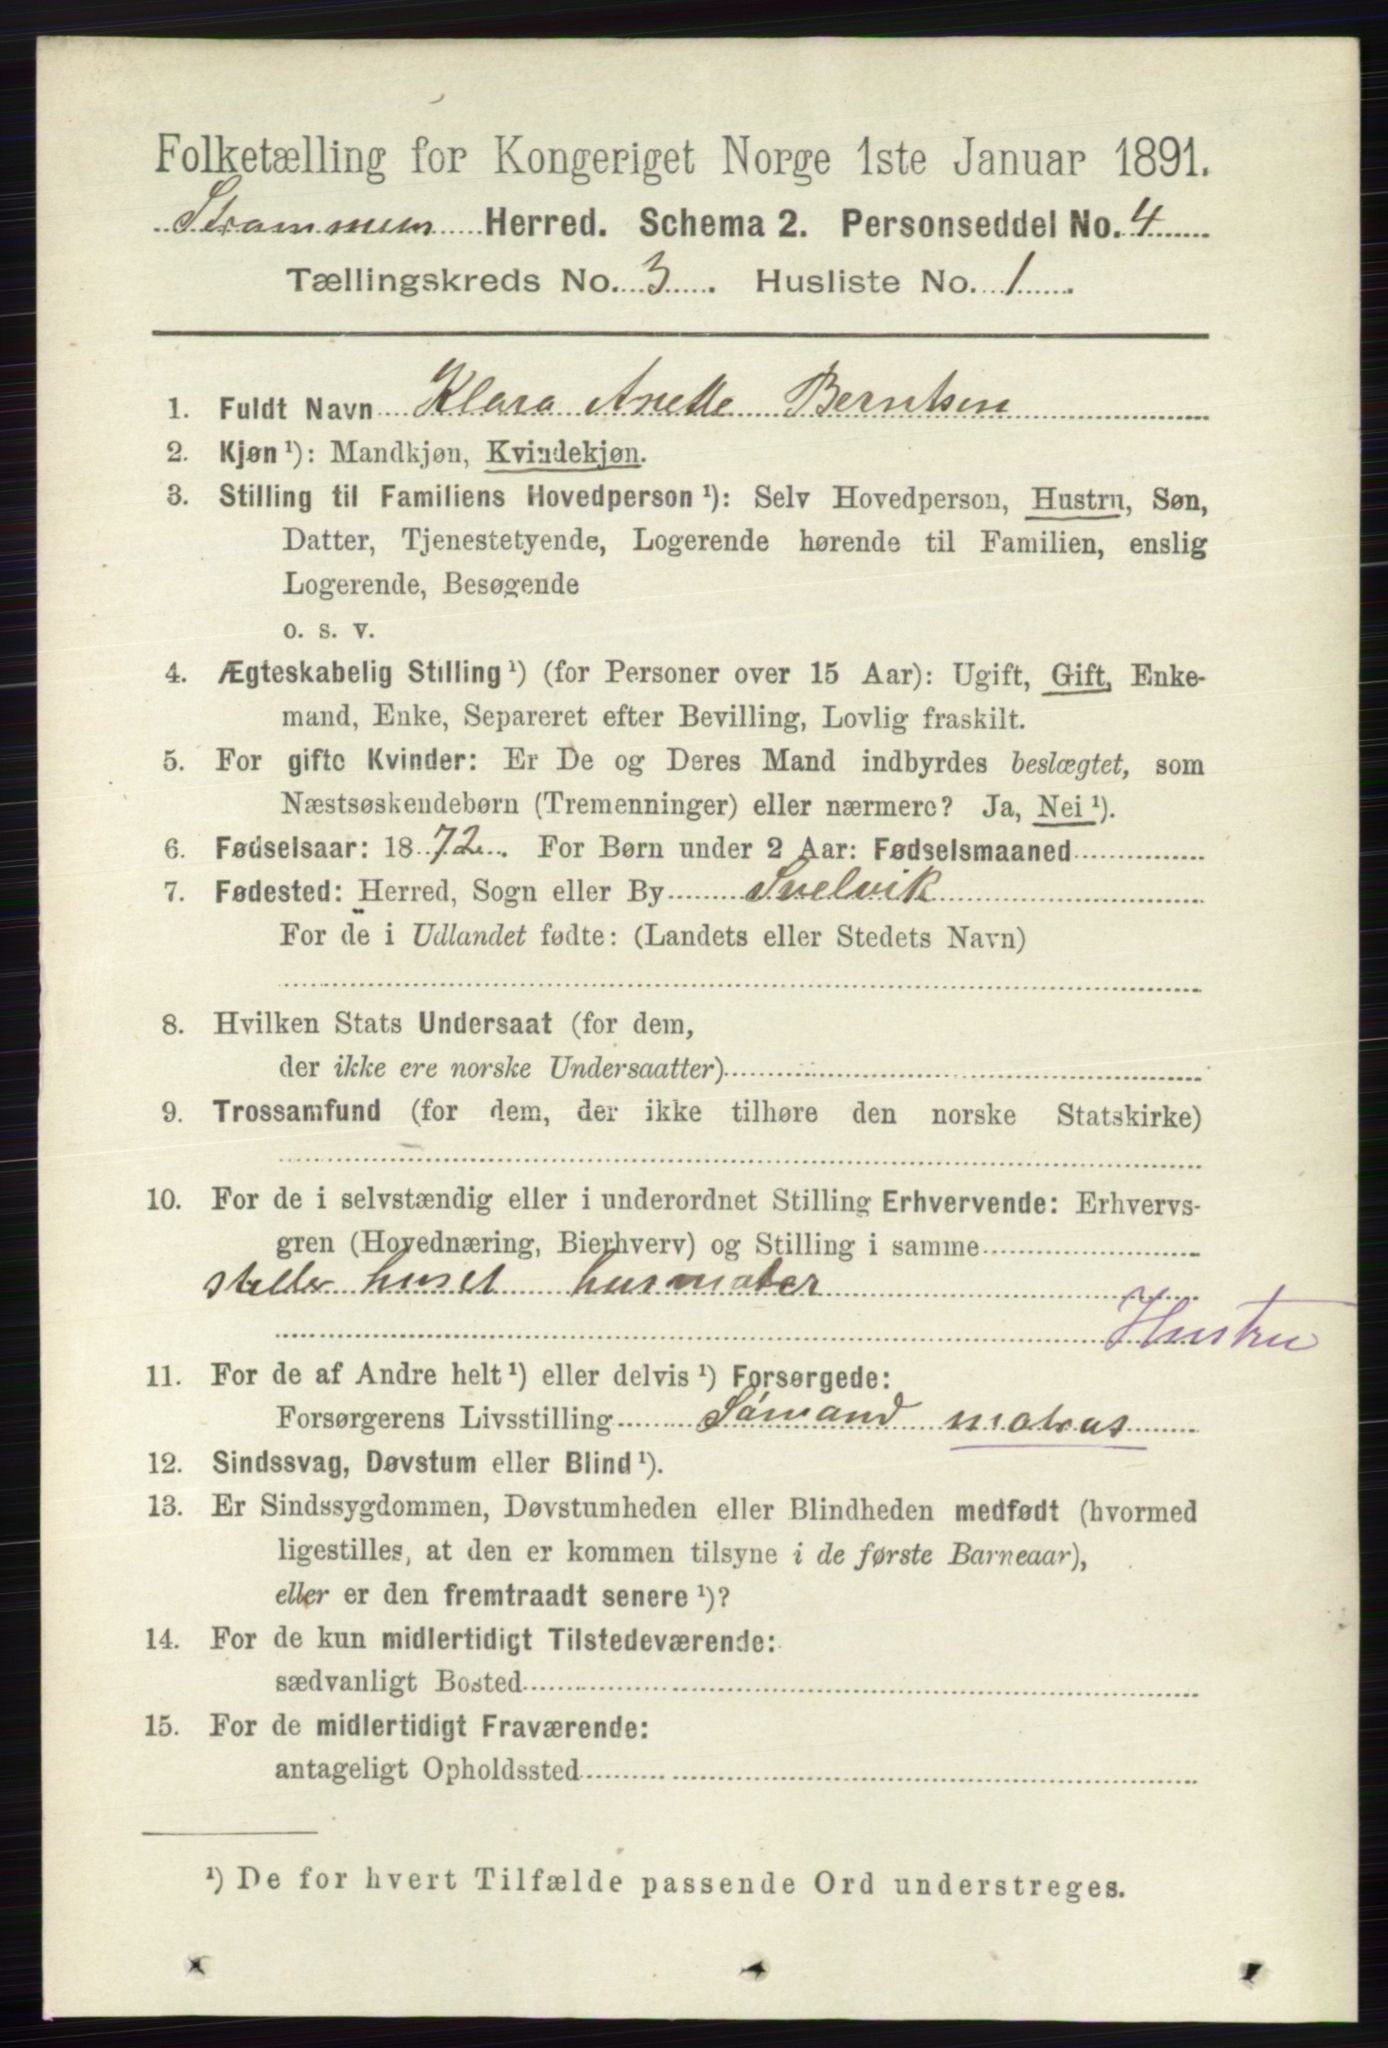 Folketælling for Kongeriget Norge 1ste Januar 1891.
Strømmen Herred. Schema 2. Personseddel No. 4
Tællingskreds No. 3. Husliste No. 1
1. Fuldt Navn Klara Anette Berntsen
2. Kjøn ¹): Mandkjøn, Kvindekjøn.
3. Stilling til Familiens Hovedperson ¹): Selv Hovedperson, Hustru, Søn,
Datter, Tjenestetyende, Logerende hørende til Familien, enslig
Logerende, Besøgende
o. s. v.
4. Ægteskabelig Stilling ¹) (for Personer over 15 Aar): Ugift, Gift, Enke-
mand, Enke, Separeret efter Bevilling, Lovlig fraskilt.
5. For gifte Kvinder: Er De og Deres Mand indbyrdes beslægtet, som
Næstsøskendebørn (Tremenninger) eller nærmere? Ja, Nei ¹).
6. Fødselsaar: 1872. For Børn under 2 Aar: Fødselsmaaned
7. Fødested: Herred, Sogn eller By Svelvik
For de i Udlandet fødte: (Landets eller Stedets Navn)
8. Hvilken Stats Undersaat (for dem,
der ikke ere norske Undersaatter)
9. Trossamfund (for dem, der ikke tilhøre den norske Statskirke)
10. For de i selvstændig eller i underordnet Stilling Erhvervende: Erhvervs-
gren (Hovednæring, Bierhverv) og Stilling i samme
steller huset husmoder
Hustru
11. For de af Andre helt ¹) eller delvis ¹) Forsørgede:
Forsørgerens Livsstilling Sömand matros
12. Sindssvag, Døvstum eller Blind ¹).
13. Er Sindssygdommen, Døvstumheden eller Blindheden medfødt (hvormed
ligestilles, at den er kommen tilsyne i de første Barneaar),
eller er den fremtraadt senere ¹)?
14. For de kun midlertidigt Tilstedeværende:
sædvanligt Bosted
15. For de midlertidigt Fraværende:
antageligt Opholdssted
¹) De for hvert Tilfælde passende Ord understreges.